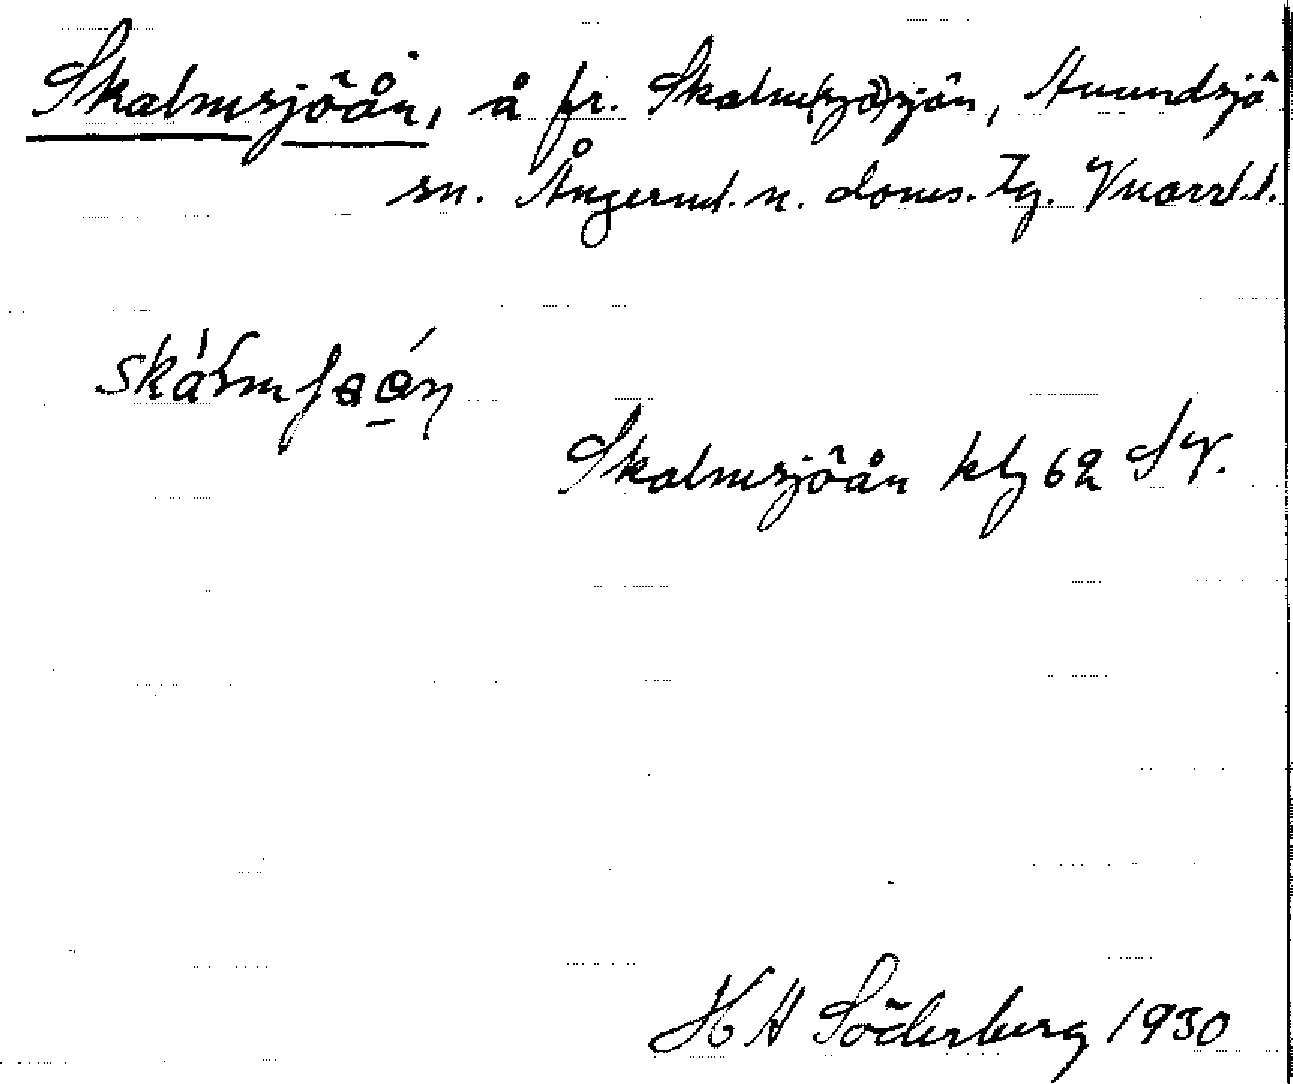 Skalmsjöån, å fr. Skalm(sjö)sjön, Anundsjö
sn. Ångerml. n. doms. Tg. Vnorrl.l.
Skalmsjöån kbl 62 SV.
K H Söderberg 1930